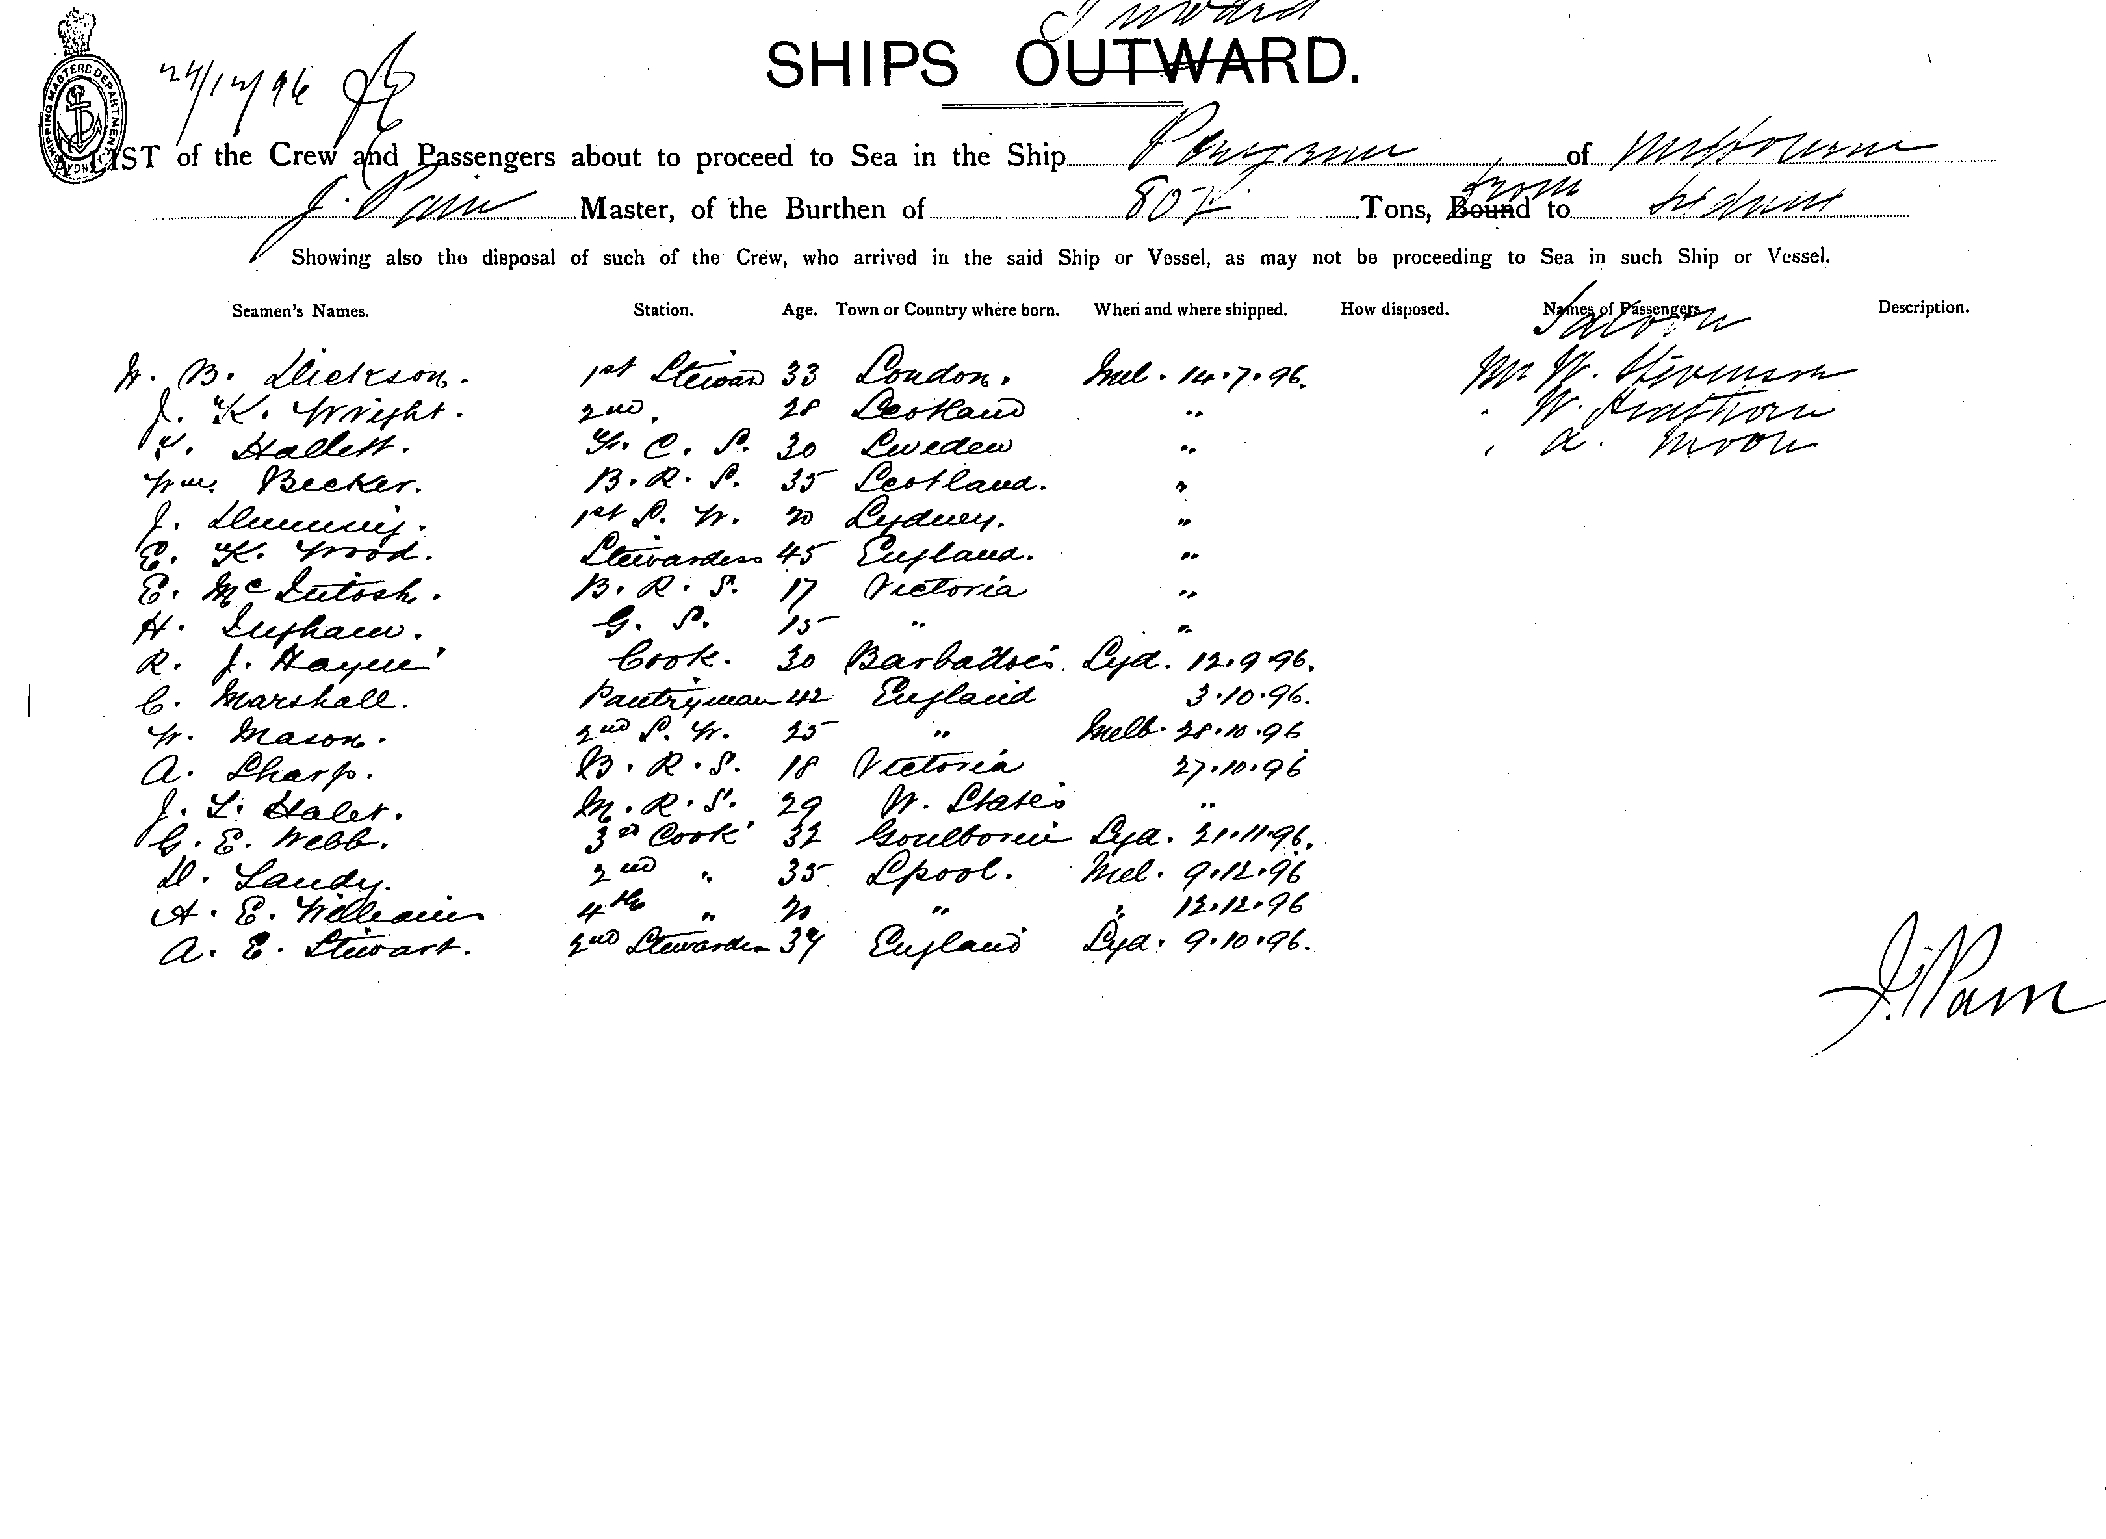 Inward
SHIPS OUTWARD.
24/12/96
SHIPPING MASTERS DEPARTMENT SYDNEY
A LIST of the Crew and Passengers about to proceed to Sea in the Ship Peregrine of Melbourne
from
J. Pain Master, of the Burthen of 807 Tons, Bound to
Showing also the disposal of such of the Crew, who arrived in the said Ship or Vessel, as may not be proceeding to Sea in such Ship or Vessel.
Seamen's Names. Station. Age. Town or Country where born. When and where shipped. How disposed. Names of Passengers Description.
Saloon
W. B. Dickson. 1st Steward 33 London. Mel. 14.7.96. Mr W. Stevenson
J. K. Wright. 2nd. 28 Scotland " " W.
Hallett. F. C. S. 30 Sweden " " A. Moon
Wm. Becker. B. R. S. 35 Scotland. "
J. 1st S. W. 20 Sydney. "
E. K. Wood. Stewardess 45 England. "
E. McIntosh. B. R. S. 17 Victoria "
H. Ingham. G. S. 15 " "
R. J. Cook. 30 Barbadoes. Syd. 12.9.96.
C. Marshall. Pantryman 42 England 3.10.96.
W. Mason. 2nd S. W. 25 " Melb. 28.10.96
A. Sharp. B. R. S. 18 Victoria 27.10.96
J. L. M. R. S. 29 U. States "
G. E. Webb. 3rd Cook 32 Syd. 21.11.96.
D. Landy. 2nd " 35 Lpool. Mel. 9.12.96
A. E. Williams 4th " 20 " " 12.12.96
A. E. Stewart. 2nd Stewardess 34 England Syd. 9.10.96.
J. Pain